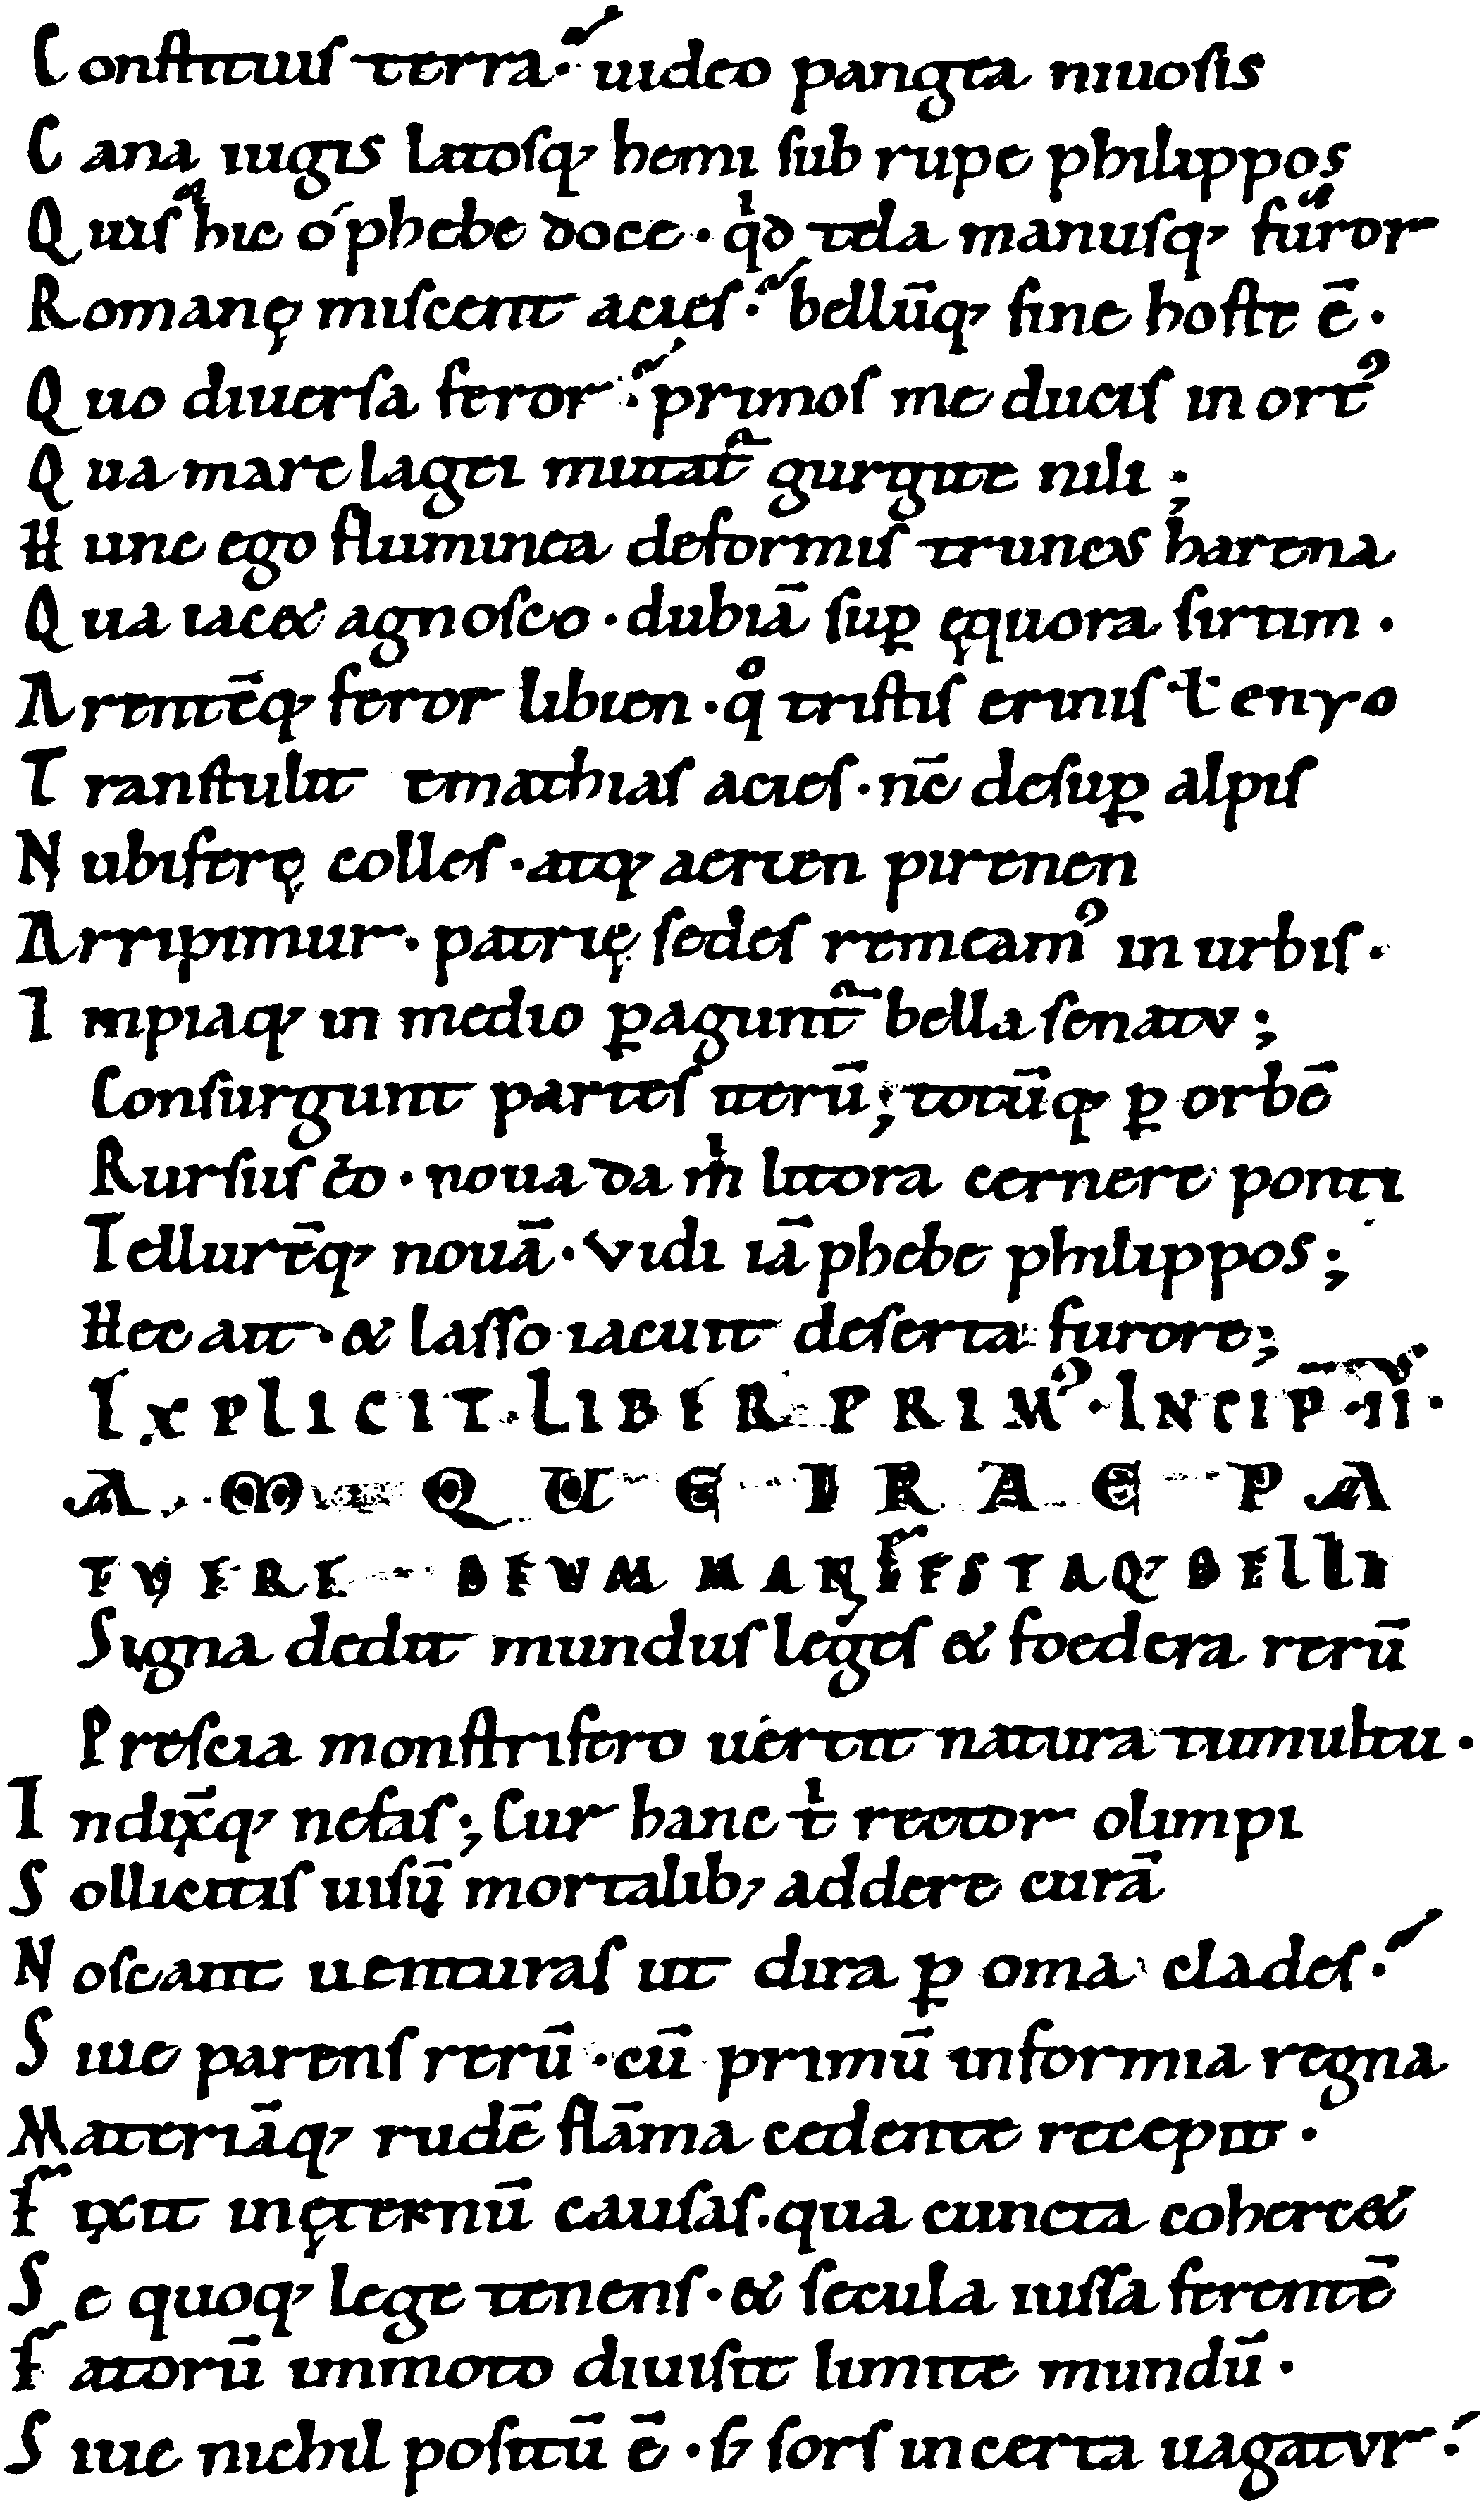 Constituis terra·̃ uideo pangęa niuosis
Cana iugis latosq; hemi sub rupe philippos
Quis hic ó phebe doce · qd̾ tela manusq; furor
Romanę miscent acies·̃ bellūq; sine hoste ē·
Quo diuersa feror·̃ primos me ducis in ort᾿
Qua mare lagęi mutat᷑ gurgite nili;
Hunc ego fluminea deformis truncus harena
Qua iac& agnosco · dubiā suꝑ ęquora sirtim ·
Arentēq; feror libien · qͦ tristis erinis ł enyo
Transtulit emathias acies · nc̄ desuꝑ alpis
Nubiferę colles · atq; aerien pirenen
Arripimur · patrię sedes remeam᾿ in urbis ·
Impiaq; in medio ꝑagunt᷑ bella senatu;
Consurgunt partes iterū; totūq; ꝑ orbē
Rursus eo · noua da m̍ litora cernere ponti
Tellurēq; nouā · Vidi iā phebe philippos;
Hec ait · & lasso iacuit deserta furore;
EXPLICIT · LIBER PRIM᾿ · INCIP̄ · II ·
IAMQUE IRAE PA
TVERE DEVM MANIFESTAQ; BELLI
Signa dedit mundus leges & foedera rerū
Prescia monstrifero uertit natura tumultu ·
Indix̄q; nefas; Cur hanc t̍ rector olimpi
Sollicitis uisū mortalib; addere curā
Noscant uenturas ut dira ꝑ oma clades·̃
Siue parens rerū · cū primū informia regna
Materiāq; rudē flāma cedente recepit ·
Fixit inęternū causas · qua cuncta coherc&
Se quoq; lege tenens · & secula iussa ferentē
Fatorū immoto diuisit limite mundū ·
Siue nichil positū ē · s; sors incerta uagatur·̃